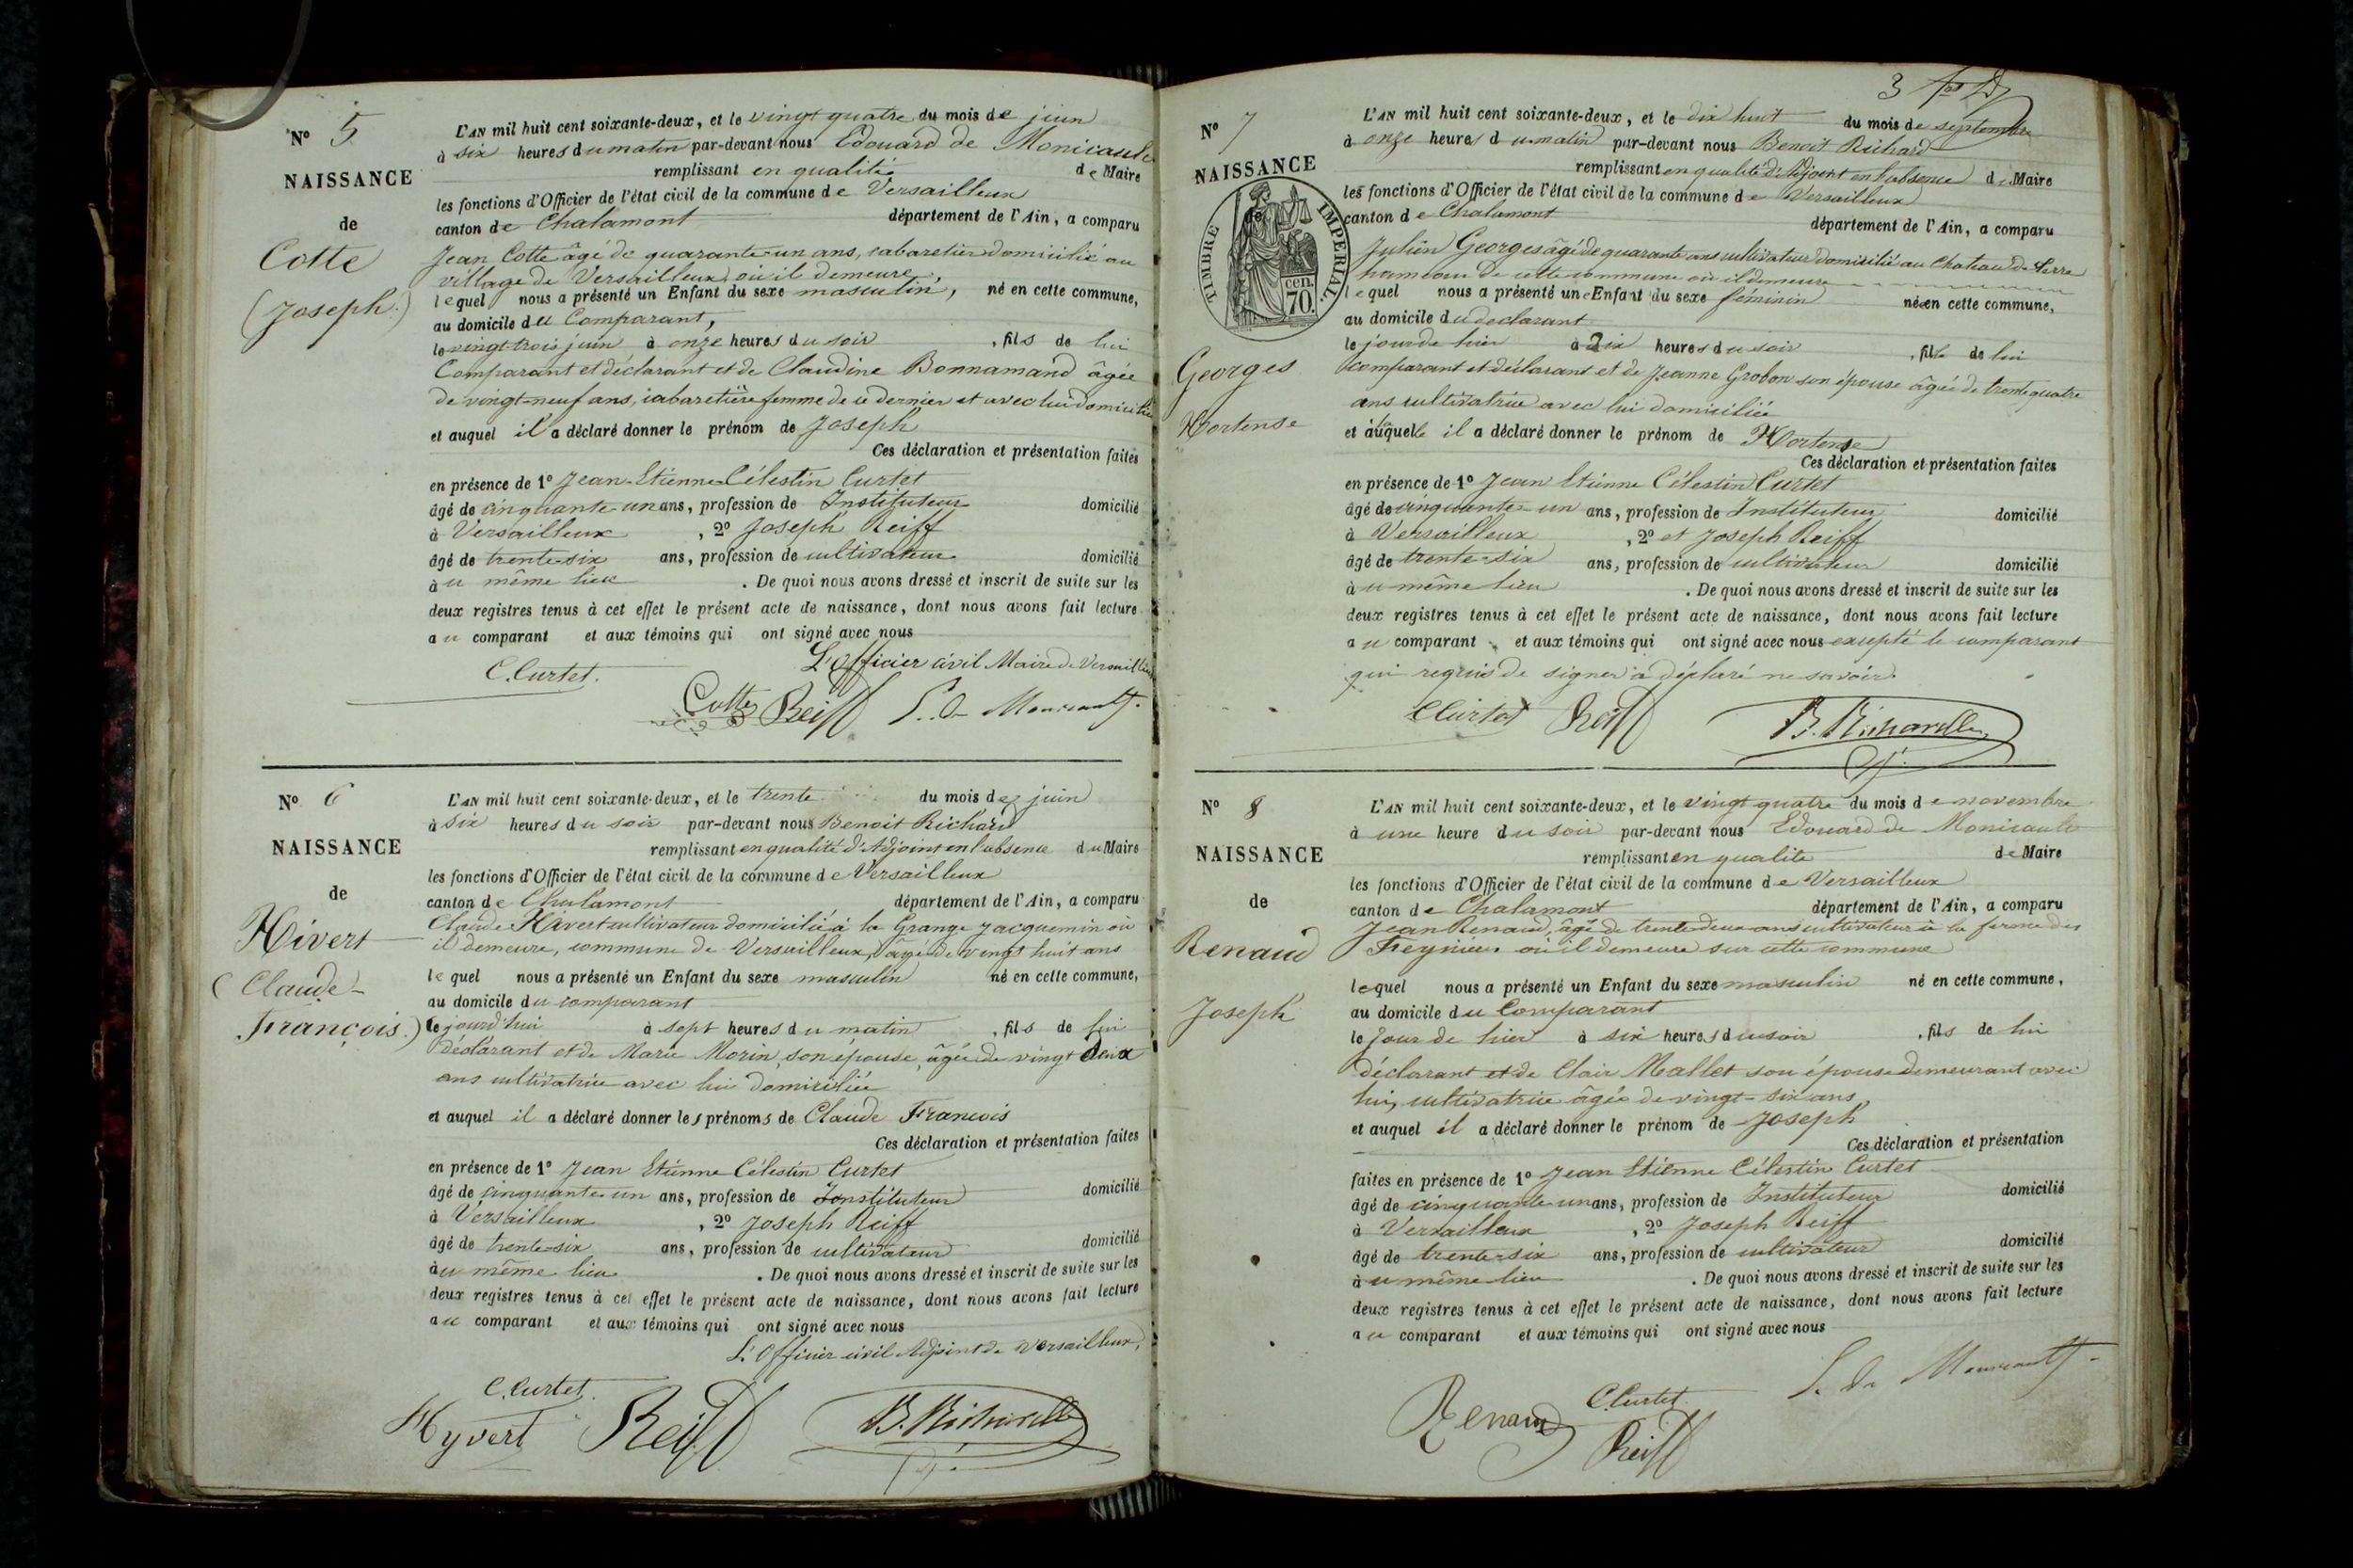 N° 5
NAISSANCE
de
Cotte
(Joseph.)
L'AN mil huit cent soixante-deux, et le vingt quatre du mois de juin
à six heures du matin par-devant nous Edouard de Monicault
remplissant en qualité de Maire
les fonctions d'Officier de l'état civil de la commune de Versailleux
canton de Chalamont département de l'Ain, a comparu
Jean Cotte âgé de quarante-un ans, cabaretier domicilié au
village de Versailleux où il demeure,
lequel nous a présenté un Enfant du sexe masculin, né en cette commune,
au domicile du Comparant,
le vingt-trois juin à onze heures du soir, fils de lui
Comparant et déclarant et de Claudine Bonnamand âgée
de vingt-neuf ans, cabaretière femme de ce dernier et avec lui domiciliée
et auquel il a déclaré donner le prénom de Joseph
Ces déclaration et présentation faites
en présence de 1° Jean-Etienne Célestin Curtet
âgé de cinquante-un ans, profession de Instituteur domicilié
à Versailleux, 2° Joseph Reiff
âgé de trente-six ans, profession de cultivateur domicilié
àu même lieu. De quoi nous avons dressé et inscrit de suite sur les
deux registres tenus à cet effet le présent acte de naissance, dont nous avons fait lecture
au comparant et aux témoins qui ont signé avec nous
L'Officier civil Maire de Versailleux
C. Curtet.
Cotte Reiff E. de Monicault.
N° 6
NAISSANCE
de
Hivert
(Claude-
François.)
L'AN mil huit cent soixante-deux, et le trente du mois de juin
à six heures du soir par-devant nous Benoit Richard
remplissant en qualité d'Adjoint en l'absence du Maire
les fonctions d'Officier de l'état civil de la commune de Versailleux
canton de Chalamont département de l'Ain, a comparu
Claude Hivert cultivateur domicilié à la Grange Jacquemin où
il demeure, commune de Versailleux, âgé de vingt huit ans
lequel nous a présenté un Enfant du sexe masculin né en cette commune,
au domicile du comparant
le jourd'hui à sept heures du matin, fils de lui
déclarant et de Marie Morin, son épouse, âgée de vingt deux
ans cultivatrice avec lui domiciliée
et auquel il a déclaré donner les prénoms de Claude François
Ces déclaration et présentation faites
en présence de 1° Jean Etienne Célestin Curtet
âgé de cinquante-un ans, profession de Instituteur domicilié
à Versailleux, 2° Joseph Reiff
âgé de trente-six ans, profession de cultivateur domicilié
àu même lieu. De quoi nous avons dressé et inscrit de suite sur les
deux registres tenus à cet effet le présent acte de naissance, dont nous avons fait lecture
au comparant et aux témoins qui ont signé avec nous
L'Officier civil Adjoint de Versailleux,
C. Curtet.
Hyvert Reiff B. Richard
3
N° 7
NAISSANCE
de
TIMBRE IMPERIAL.
70. cen.
Georges
Hortense
L'AN mil huit cent soixante-deux, et le dix huit du mois de septembre
à onze heures du matin par-devant nous Benoit Richard
remplissant en qualité d'Adjoint en l'absence du Maire
les fonctions d'Officier de l'état civil de la commune de Versailleux
canton de Chalamont département de l'Ain, a comparu
Julien Georges âgé de quarante ans cultivateur domicilié au Chateau de Serre
hameau de cette commune où il demeure
lequel nous a présenté une Enfant du sexe féminin née en cette commune,
au domicile du declarant
le jour de hier à Dix heures du soir, fille de lui
comparant et déclarant et de Jeanne Grobon son épouse âgée de trente quatre
ans cultivatrice avec lui domiciliée
et à laquelle il a déclaré donner le prénom de Hortense
Ces déclaration et présentation faites
en présence de 1° Jean Etienne Célestin Curtet
âgé de cinquante-un ans, profession de Instituteur domicilié
à Versailleux, 2° et Joseph Reiff
âgé de trente-six ans, profession de cultivateur domicilié
àu même lieu. De quoi nous avons dressé et inscrit de suite sur les
deux registres tenus à cet effet le présent acte de naissance, dont nous avons fait lecture
au comparant et aux témoins qui ont signé avec nous excepté le comparant
qui requis de signer a déclaré ne savoir.
C Curtet Reiff B. Richard
N° 8
NAISSANCE
de
Renaud
Joseph
L'AN mil huit cent soixante-deux, et le vingt quatre du mois de novembre
à une heure du soir par-devant nous Edouard de Monicault
remplissant en qualité de Maire
les fonctions d'Officier de l'état civil de la commune de Versailleux
canton de Chalamont département de l'Ain, a comparu
Jean Renaud, âgé de trente deux ans cultivateur à la ferme des
Freyniers où il demeure sur cette commune
lequel nous a présenté un Enfant du sexe masculin né en cette commune,
au domicile du Comparant
le Jour de hier à six heures du soir, fils de lui
déclarant et de Clair Mallet son épouse demeurant avec
lui, cultivatrice âgée de vingt-six ans
et auquel il a déclaré donner le prénom de Joseph
Ces déclaration et présentation
faites en présence de 1° Jean Etienne Célestin Curtet
âgé de cinquante un ans, profession de Instituteur domicilié
à Versailleux, 2° Joseph Reiff
âgé de trente-six ans, profession de cultivateur domicilié
àu même lieu. De quoi nous avons dressé et inscrit de suite sur les
deux registres tenus à cet effet le présent acte de naissance, dont nous avons fait lecture
au comparant et aux témoins qui ont signé avec nous
E. de Monicault
Renaud C. Curtet
Reiff